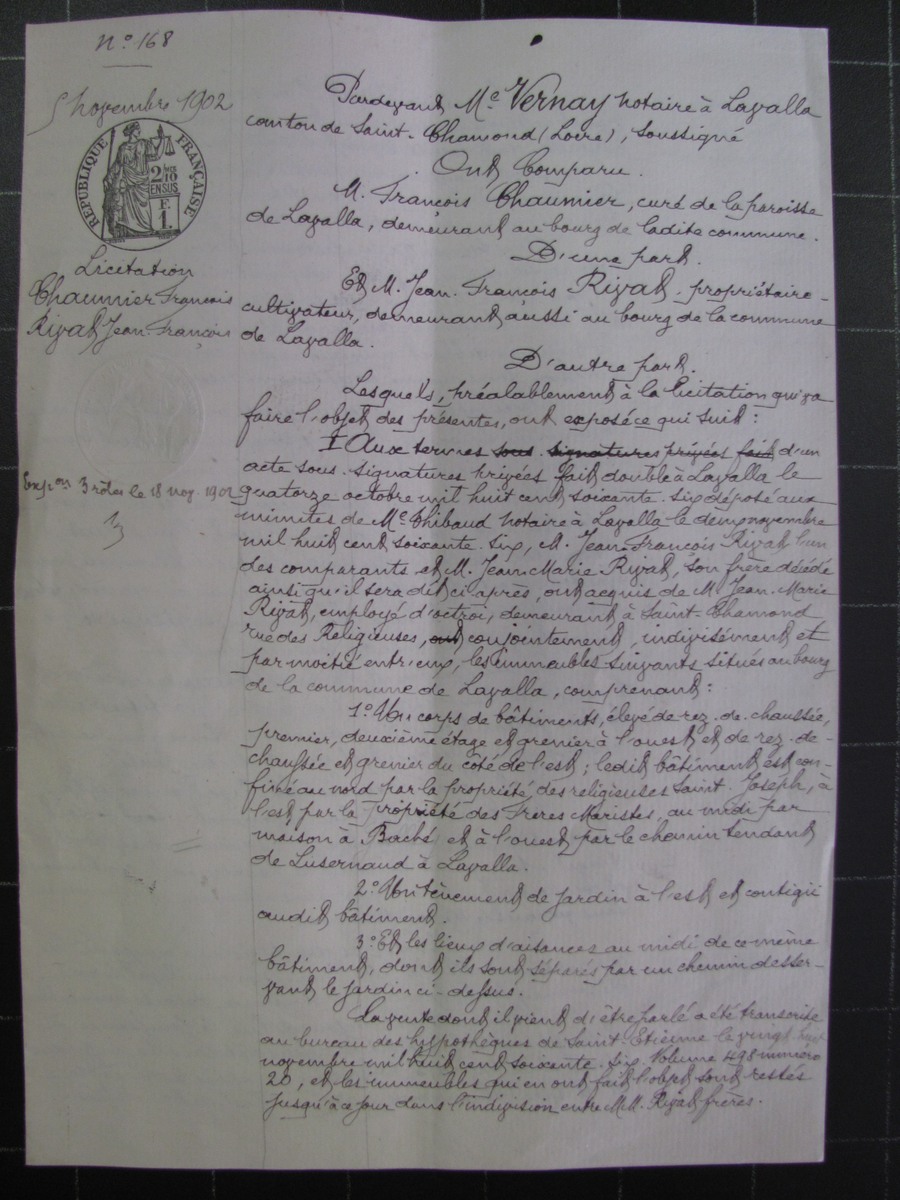 N° 168
5 novembre 1902
RÉPUBLIQUE FRANÇAISE
2/10 EN SUS
F. 1.
Licitation
Chaumier François
Rivat Jean-François
Expon 3 rôles le 18 nov. 1902
Pardevant Me Vernay notaire à Lavalla
canton de Saint-Chamond (Loire), soussigné
Ont Comparu.
M. François Chaumier, curé de la paroisse
de Lavalla, demeurant au bourg de ladite commune.
D'une part.
Et M. Jean-François Rivat, propriétaire-
cultivateur, demeurant aussi au bourg de la commune
de Lavalla.
D'autre part.
Lesquels, préalablement à la licitation qui va
faire l'objet des présentes, ont exposé ce qui suit :
I Aux termes sous signatures privées fait d'un
acte sous-signatures privées fait double à Lavalla le
quatorze octobre mil huit cent soixante-six déposé aux
minutes de Me Thibaud notaire à Lavalla le deux novembre
mil huit cent soixante-six, M. Jean-François Rivat l'un
des comparants et M. Jean-Marie Rivat, son frère décédé
ainsi qu'il sera dit ci après, ont acquis de M. Jean-Marie
Rivat, employé d'octroi, demeurant à Saint-Chamond
rue des Religieuses, ont conjointement, indivisément et
par moitié entr'eux, les immeubles suivants situés au bourg
de la commune de Lavalla, comprenant :
1° Un corps de bâtiments, élevé de rez-de-chaussée,
premier, deuxième étage et grenier à l'ouest et de rez-de-
chaussée et grenier du côté de l'est ; ledit bâtiment est con-
finé au nord par la propriété des religieuses Saint-Joseph, à
l'est par la propriété des Frères Maristes, au midi par
maison à Baché et à l'ouest par le chemin tendant
de Lusernaud à Lavalla.
2° Un tènement de jardin à l'est et contigü
audit bâtiment.
3° Et les lieux d'aisances au midi de ce même
bâtiment, dont ils sont séparés par un chemin desser-
vant le jardin ci-dessus.
La vente dont il vient d'être parlé a été transcrite
au bureau des hypothèques de Saint-Etienne le vingt huit
novembre mil huit cent soixante-six Volume 498 numéro
20, et les immeubles qui en ont fait l'objet sont restés
jusqu'à ce jour dans l'indivision entre M.M. Rivat frères.